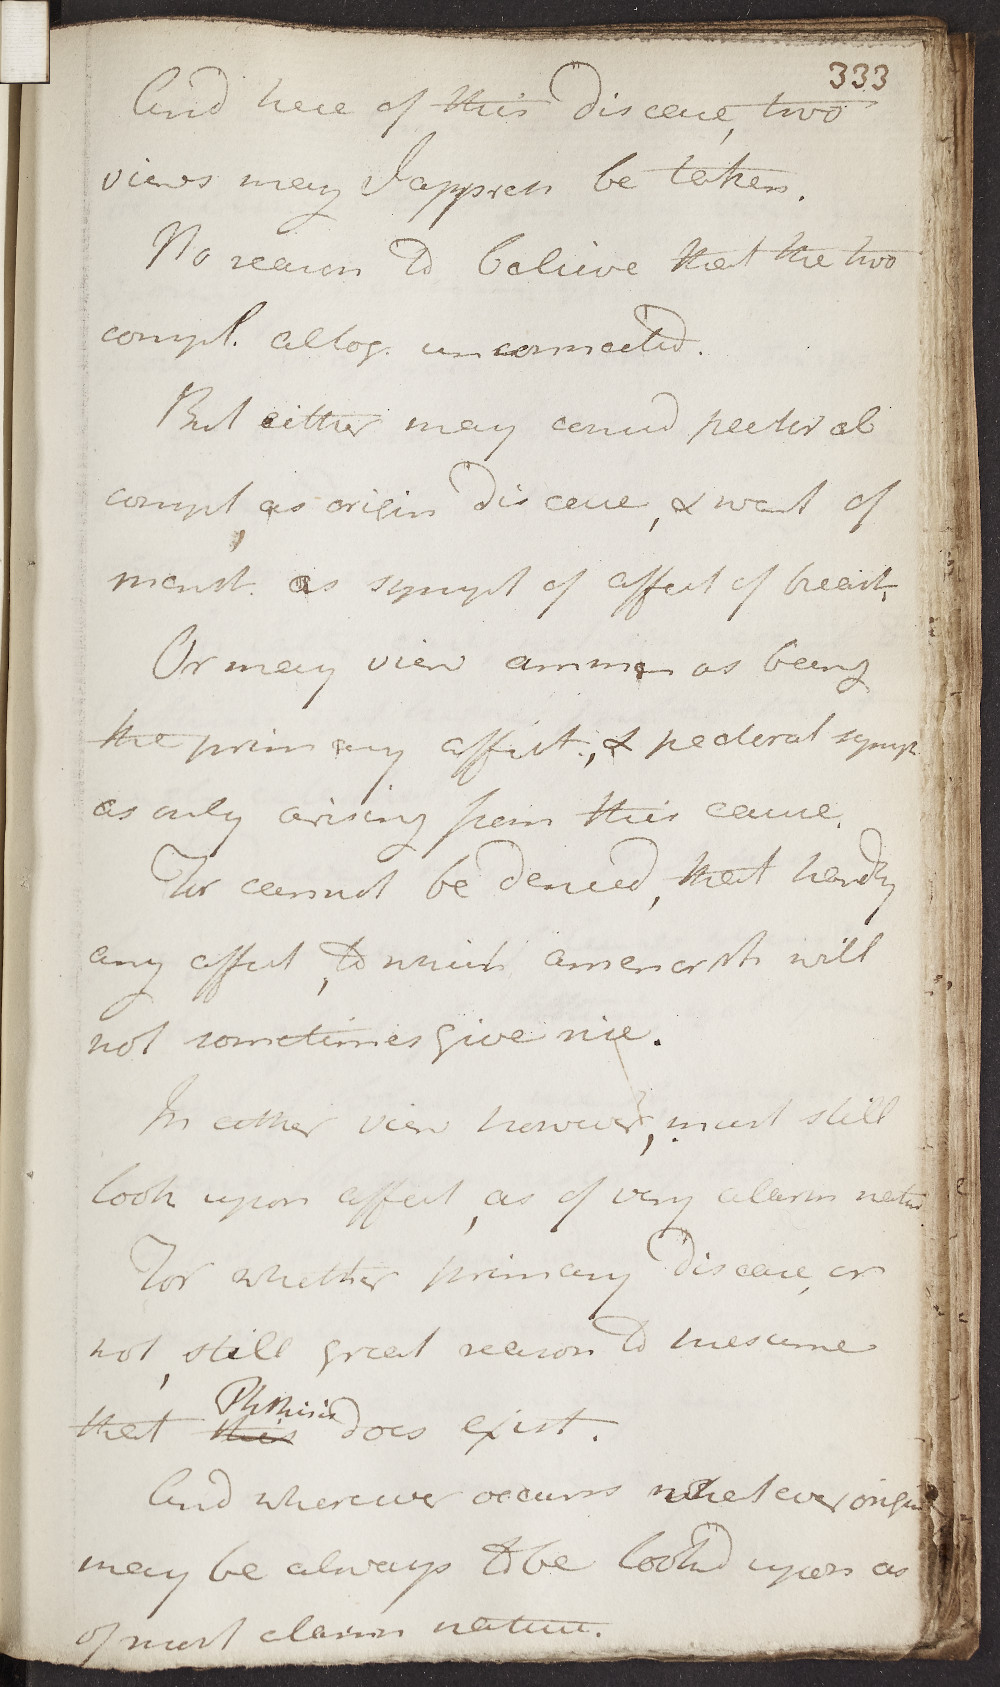 333
And here of this disease, two
views may I appreh be taken.
No reason to believe that the two
compl. altog. unconnected.
But either may consid pectoral
compl, as origin disease, & want of
menst. as sympt of affect of breast,
Or may view amen as being
the primary affect., & pectoral symp
as only arising from this cause.
For cannot be denied, that hardly
any affect, to which amenorrh will
not sometimes give rise.
In either view however, must still
look upon affect, as of very alarm natur
For whether primary disease, or
not, still great reason to presume
that Phthisis does exist.
And wherever occurs whatever origin
may be always to be look'd upon as
of most alarm nature.